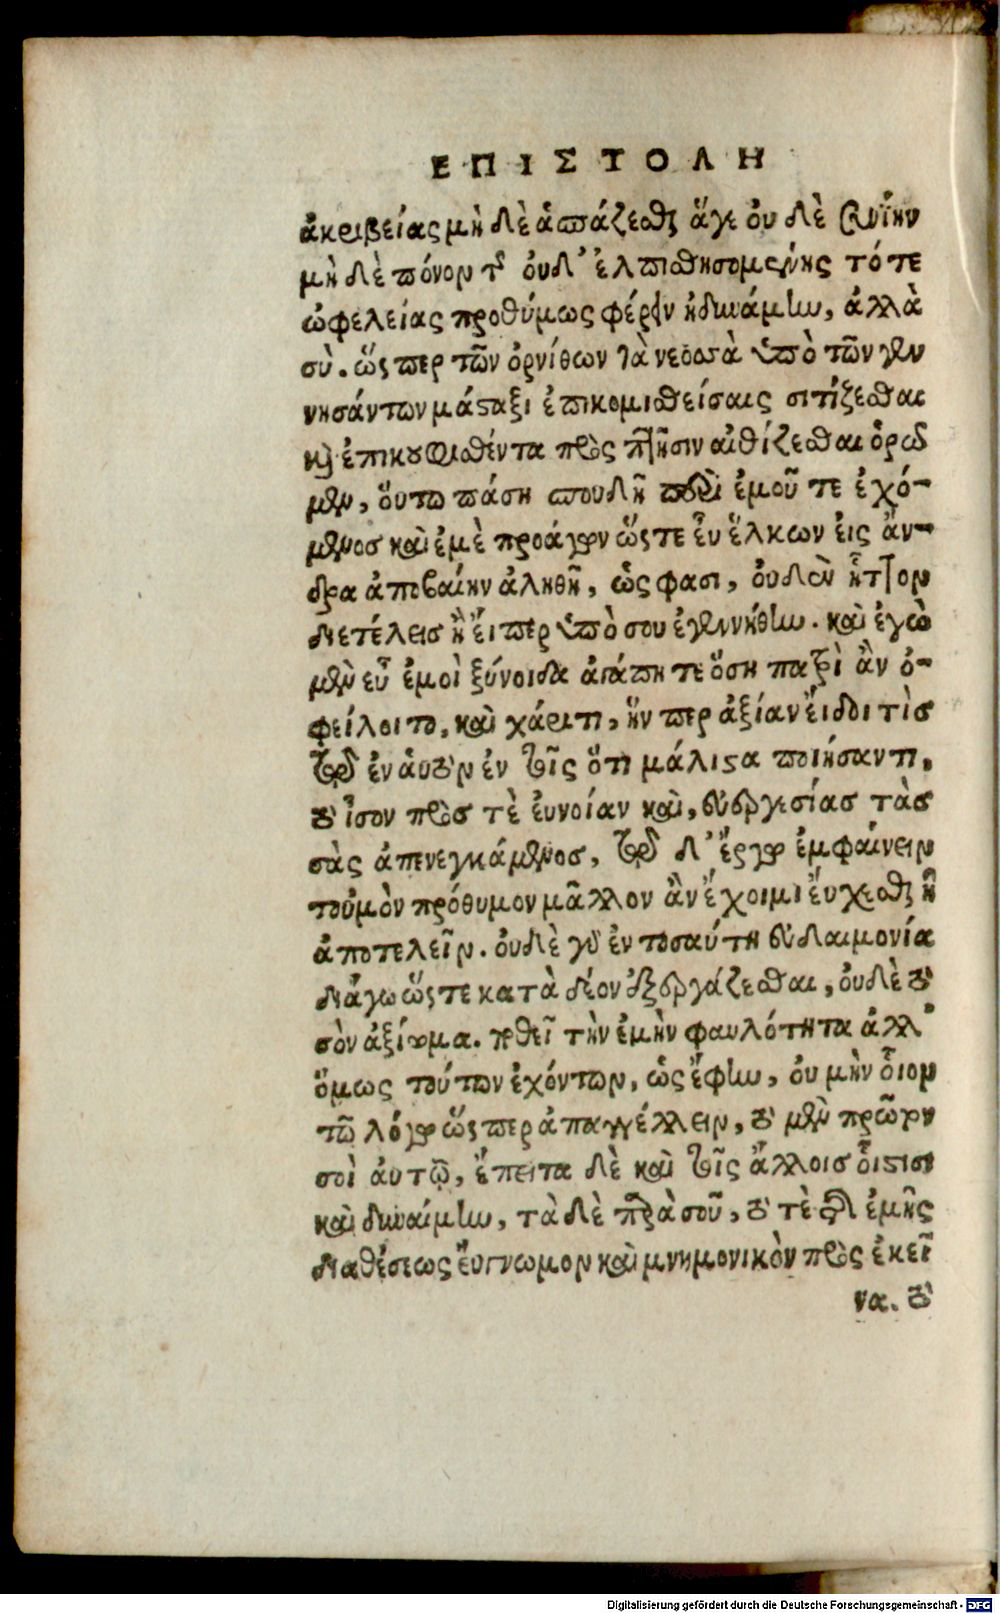 ΕΠΙΣΤΟΛΗ
ἀκριβείας μὴ δὲ ἀσπάζεσθαι ἅγε οὐ δὲ
μὴ δὲ πόνον τῆς οὐδ' ἐλπισθησομένης τότε
ὠφελείας προθύμως φέρειν ἠδυνάμην, ἀλλὰ
σὺ. ὥςπερ τῶν ὀρνίθων τὰ νεοσσὰ ὑπὸ τῶν γεν
νησάντων μάσαξι ἐπικομισθείσαις σιτίζεσθαι
καὶ ἐπικουφισθέντα πρὸς πτῆσιν αἰθίζεσθαι ὁρῶ
μεν, ὅυτω πάσῃ σπουδῇ περὶ ἐμοῦ τε ἐχό-
μενος καὶ ἐμὲ προάγων ὥςτε ἐυ ἕλκων ἐις ἄν-
δρα ἀποβαίην ἀληθῆ, ὡς φασι, οὐδὲν ἧττον
διετέλεις ἢ ἔιπερ ὑπὸ σου ἐγεννήθην. καὶ ἐγὼ
μὲν εὖ ἐμοὶ ξύνοιδα ἀγάπῃ τε ὅσῃ πατρὶ ἂν ὀ-
φείλοιτο, καὶ χάριτι, ἥνπερ ἀξίαν ἔιδοι τὶς
τῷ ἐν ἀυτὸν ἐν τοῖς ὅτι μάλιστα ποιήσαντι,
τὸ ἶσον πρὸς τὲ ἐυνοίαν καὶ, εὐεργεσίας τὰς
σὰς ἀπενεγκάμενος, τῷ δ' ἔργῳ ἐμφαίνειν
τοὐμὸν πρόθυμον μᾶλλον ἂν ἔχοιμι ἔυχεσθαι ἢ
ἀποτελεῖν. ὀυδὲ γὰρ ἐν τοσαύτῃ εὐδαιμονίᾳ
διάγω ὥςτε κατὰ δέον ἐξεργάζεσθαι, ὀυδὲ τὸ
σὸν ἀξίωμα. ποθεῖ τὴν ἐμὴν φαυλότητα ἀλλ'
ὅμως τούτων ἐχόντων, ὡς ἔφην, ὀυ μὴν ὅιον
τῷ λόγῳ ὥςπερ ἀπαγγέλλειν, τὸ μὲν πρῶτον
σοὶ ἀυτῷ, ἔπειτα δὲ καὶ τοῖς ἄλλοις ὅιστισι
καὶ δυναίμην, τὰ δὲ παρὰ σοῦ, τὸ τὲ τῆς ἐμῆς
διαθέσεως ἔυγνωμον καὶ μνημονικὸν πρὸς ἐκεῖ
να. τὸ
Digitalisierung gefördert durch die Deutsche Forschungsgemeinschaft - DFG